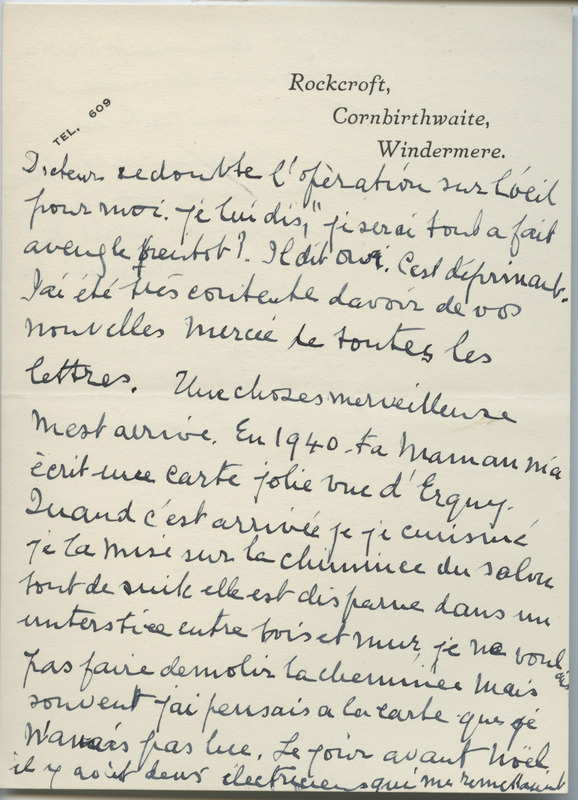 Rockcroft,
Cornbirthwaite,
Windermere.
TEL. 609
Docteur redoubte l'opèration sur l'oeil
pour moi. je lui dis, "je serai tout a fait
aveugle bientot?. Il dit oui. C'est déprimant.
J'ai été très contente davoir de vos
nouvelles Mercie de toutes les
lettres. Une choses merveilleuse
m'est arrive. En 1940 - ta Maman m'a
écrit une carte jolie vue d'Erquy.
Quand c'est arrivée je je cuisiné
je la mise sur la cheminée du salon
tout de suite elle est disparue dans un
unterstice entre bois et mur, je ne voulais
pas faire demolir la cheminée mais
souvent j'ai pensais a la carte que je
n'avais pas lue. Le jour avant Noël
il y avait deux électriciens qui me remettaient